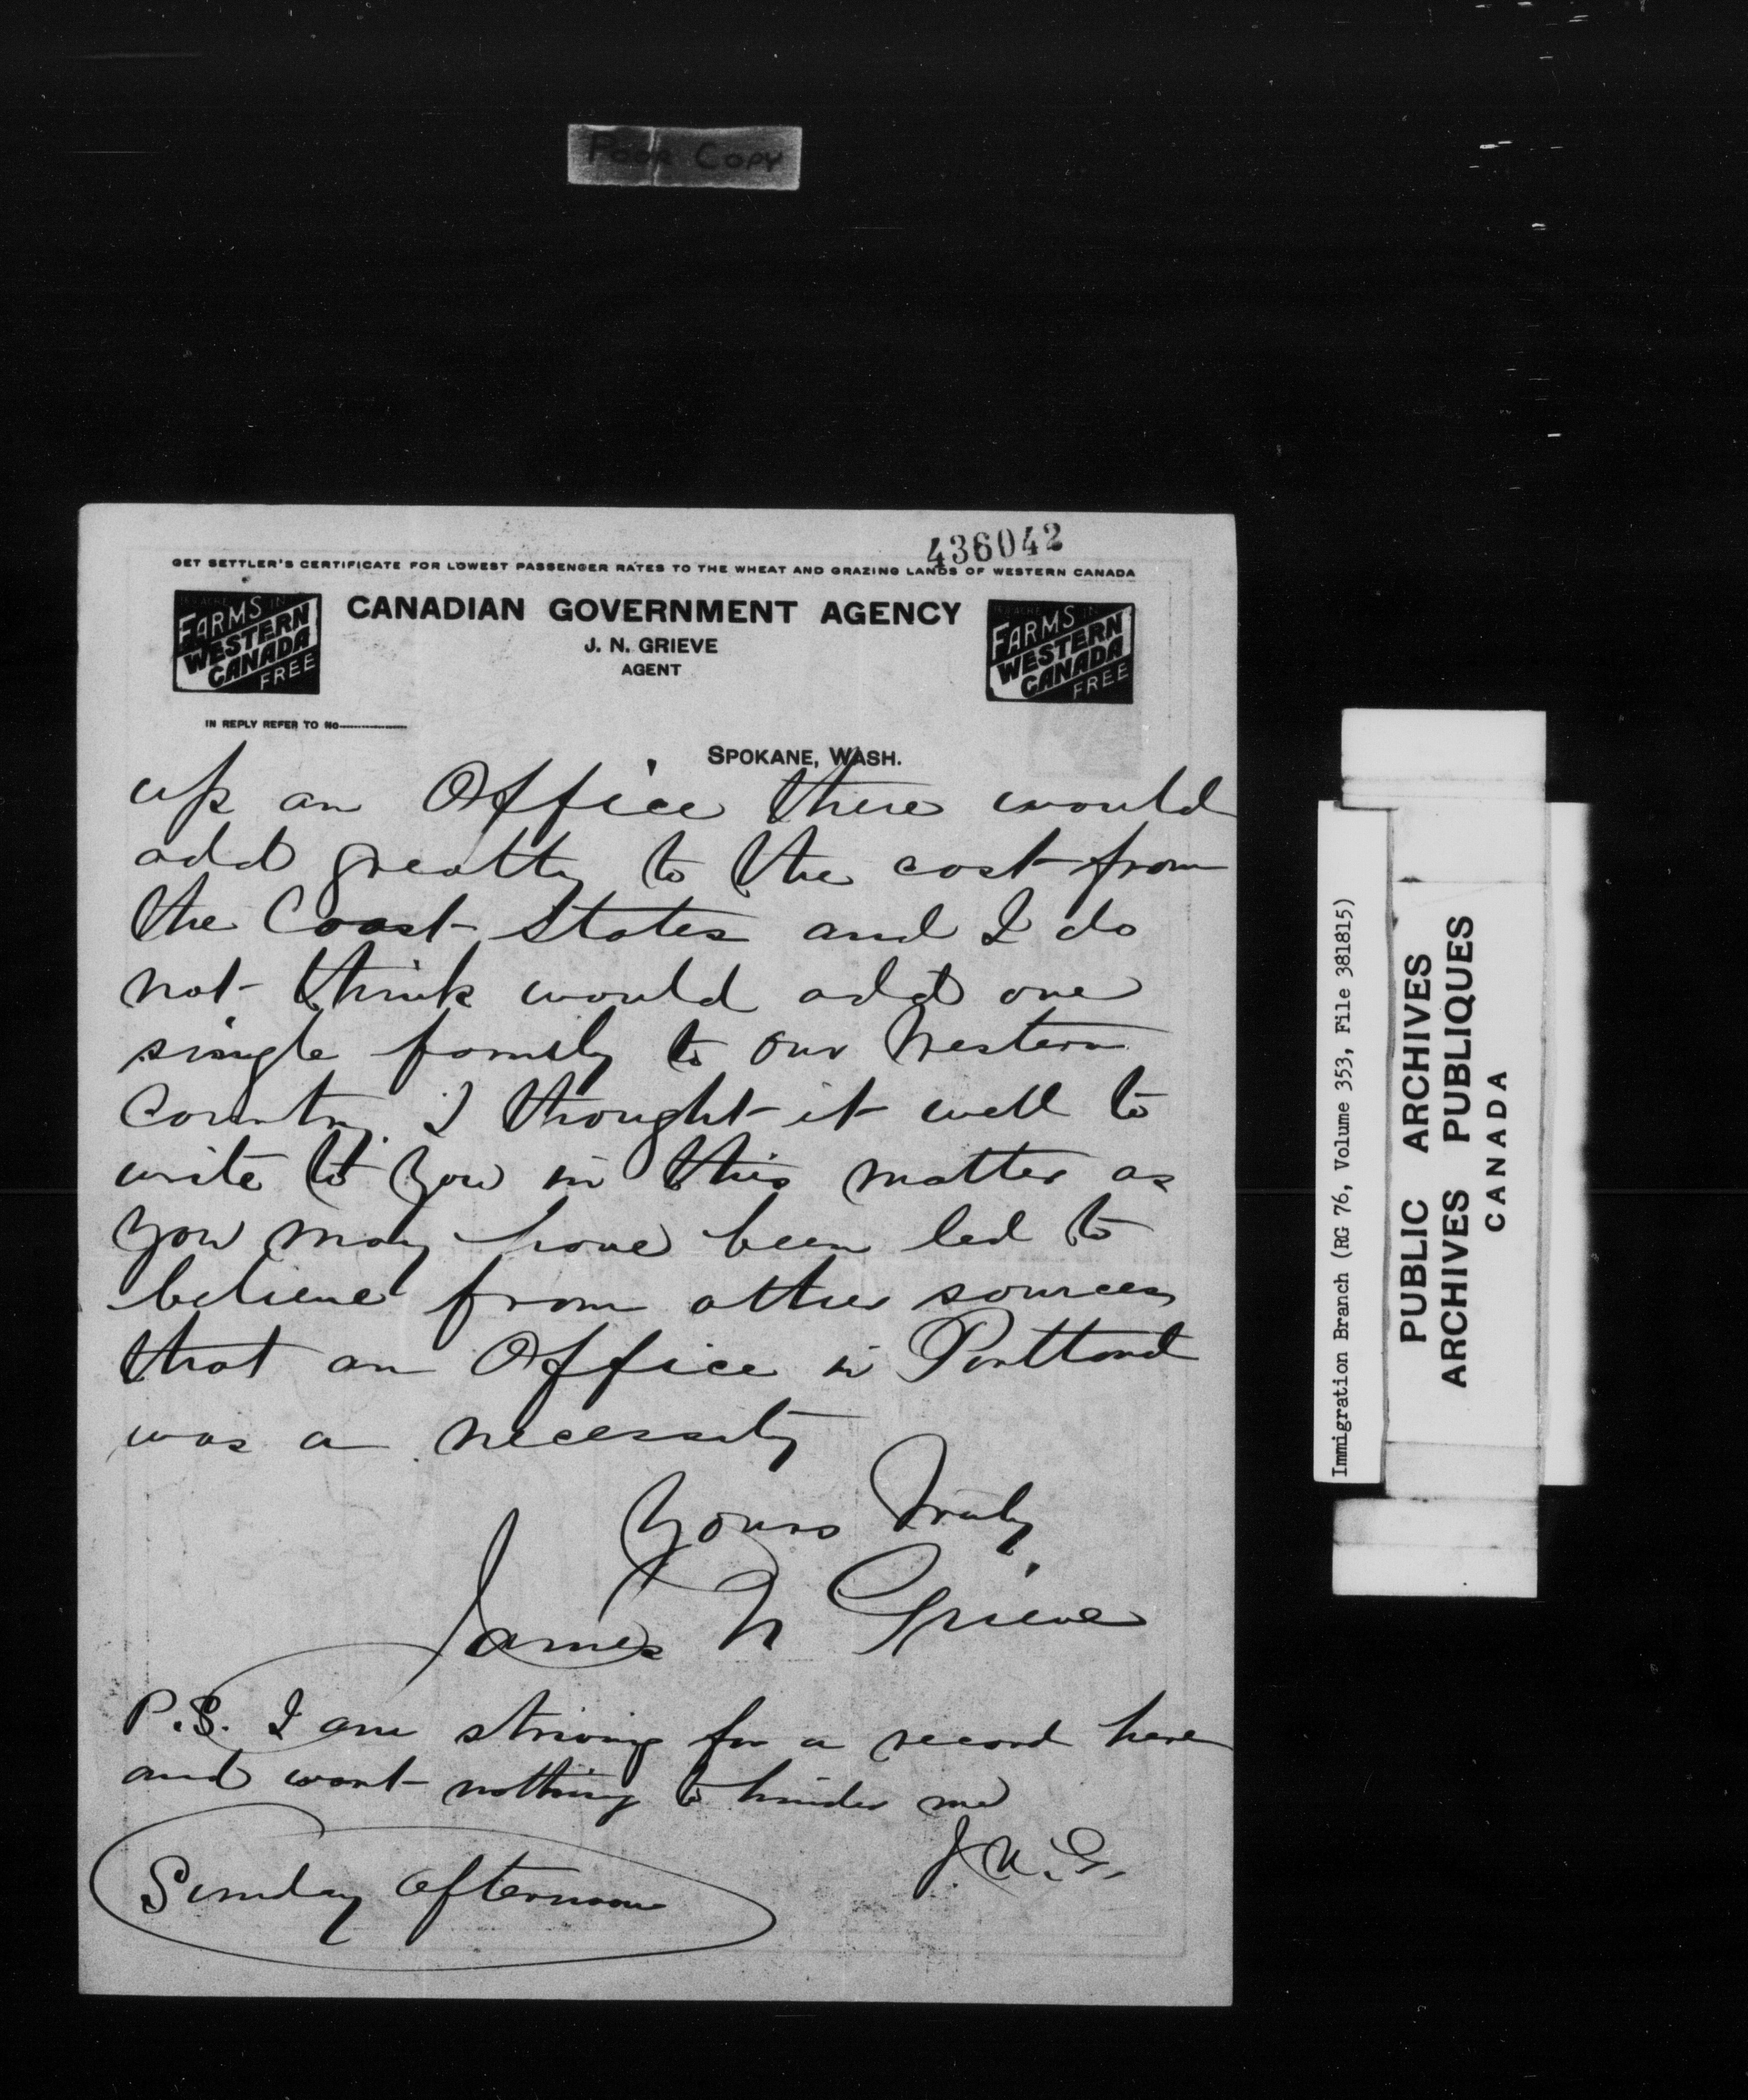 POOR COPY
436042
GET SETTLER'S CERTIFICATE FOR LOWEST PASSENGER RATES TO THE WHEAT AND GRAZING LANDS OF WESTERN CANADA
FARMS IN
WESTERN
CANADA
FREE
CANADIAN GOVERNMENT AGENCY
J. N. GRIEVE
AGENT
FARMS IN
WESTERN
CANADA
FREE
IN REPLY REFER TO No
SPOKANE, WASH.
up an Office there would
add greatly to the cost from
the Coast States and I do
not think would add one
single family to our Western
Country. I thought it well to
write to you in this matter as
you may have been led to
believe from other sources
that an Office in Portland
was a necessity
Yours Truly
James N Grieve
P.S. I am striving for a record here
and want nothing to hinder me
J.N.G.
Sunday afternoon
Immigration Branch (RG 76, Volume 353, File 381815)
PUBLIC ARCHIVES
ARCHIVES PUBLIQUES
CANADA